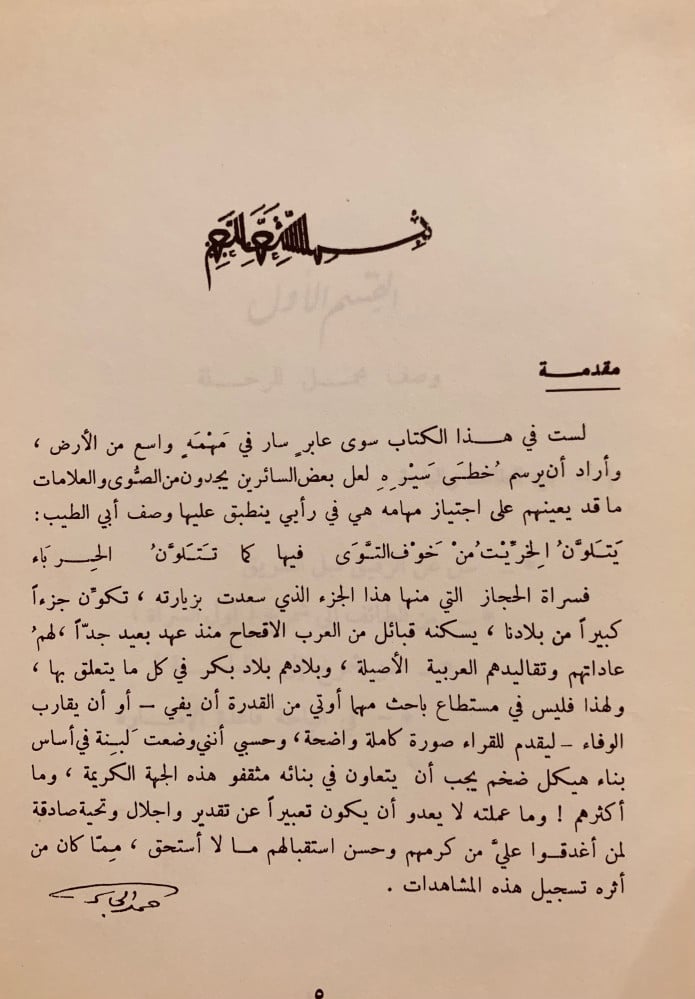 بسم الله الرحمن الرحيم
مقدمة
لست في هذا الكتاب سوى عابرٍ سار في مَهْمَهٍ واسع من الأرض ،
وأراد أن يرسم خُطَى سَيْرِهِ لعل بعض السائرين يجدون من الصُّوى والعلامات
ما قد يعينهم على اجتياز مهامه هي في رأيي ينطبق عليها وصف أبي الطيب :
يَتَلَوَّنُ الخِرِّيْتُ مِنْ خَوْفِ التَّوَى فيها كما تَتَلَوَّنُ الحِرباء
فسراة الحجاز التي منها هذا الجزء الذي سعدت بزيارته ، تكوِّن جزءاً
كبيراً من بلادنا ، يسكنه قبائل من العرب الاقحاح منذ عهد بعيد جدّاً ، لهمُ
عاداتهم وتقاليدهم العربية الأصيلة ، وبلادهم بلاد بكر في كل ما يتعلق بها ،
ولهذا فليس في مستطاع باحث مهما أوتي من القدرة أن يفي – أو أن يقارب
الوفاء – ليقدم للقراء صورة كاملة واضحة ، وحسبي أنني وضعت لَبِنة في أساس
بناء هيكل ضخم يجب أن يتعاون في بنائه مثقفو هذه الجهة الكريمة ، وما
أكثرهم ! وما عملته لا يعدو أن يكون تعبيراً عن تقدير واجلال وتحية صادقة
لمن أغدقوا عليَّ من كرمهم وحسن استقبالهم ما لا أستحق ، مِمّا كان من
أثره تسجيل هذه المشاهدات .
حمد الجاسر
القسم الأول
٥